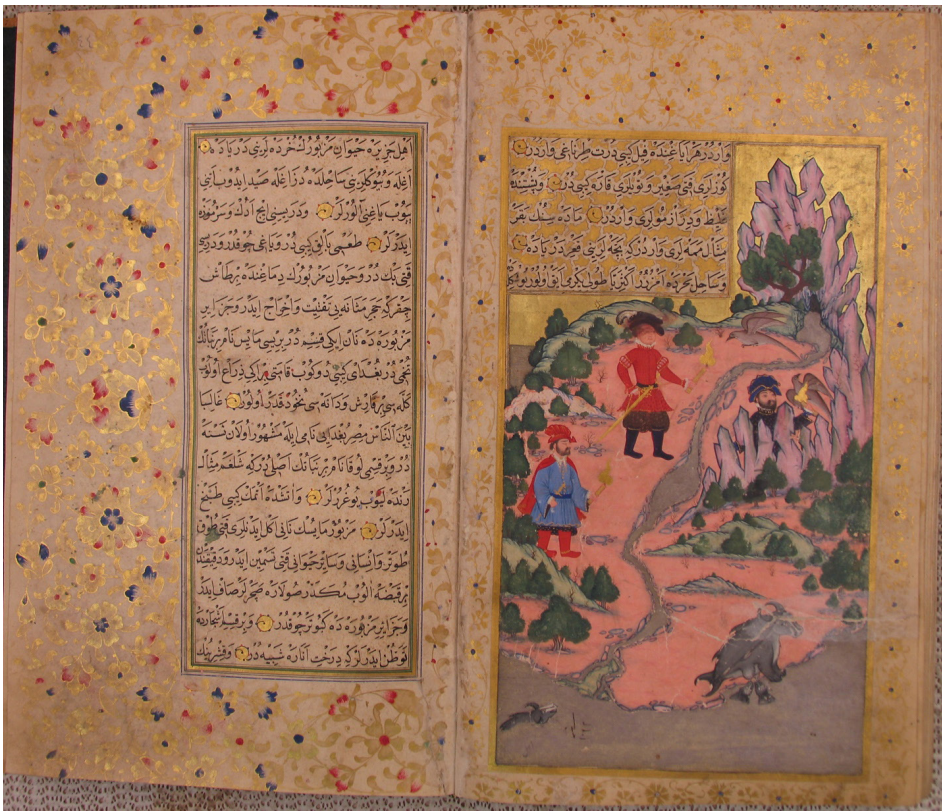 واردر هر اياغنده فيل كبى درت طرناغى واردر
كوزلرى قتى صغير و تويلرى قاره كبى در
غليظ و دراز مولرى واردر ماده سنك بقر
مثال ممه لرى واردر كه بچه لرينى قعر درياده
و ساحل بحرده امزيدر اكثريا طولى يكرمى اياق اولور
اهل جزيره حيوان مزبورك خرده لرينى درياده
اغله و بيوكلرينى ساحلده دزاغله صيد ايدوب آتنى
يوب ياغنى آلورلر و دريسنى انجه ادك و سرموزه
ايدرلر طعمى بالق كبى در و ياغى چوقدر و دريسى
قتى پك در و حيوان مزبورك دماغنده بر طاش
چقر كه حجر مثانه يى تفتيت و اخراج ايدر و جزاير
مزبوره ده نان ايكى قسم در بريسى مايس نام بر نباتك
تخمى در بغداى كبى دوكوب قامتى بر ايكى ذراع اولوب
كله سى بر قارش و دانه سى نخود قدر اولور غالبا
بين الناس مصر بغدايى نامى ايله مشهور اولان نسنه
در و بر قسمى لوقا نام بر نباتك اصلى در كه شلغم مثال
رنده ليوب يوغررلر و آتشده اتمك كبى طبخ
ايدرلر مزبور مايسك نانى اكل ايدنلرى قتى طوق
طوتر و انسانى و ساير حيوانى قتى سمين ايدر و دقيقندن
بر قبضه آلوب مكدر صولاره صچرلر صاف ايدر
و جزاير مزبوره ده كبوتر چوقدر و بر
توطن ايدرلر كه درخت اناره شبيه در و قشرينك